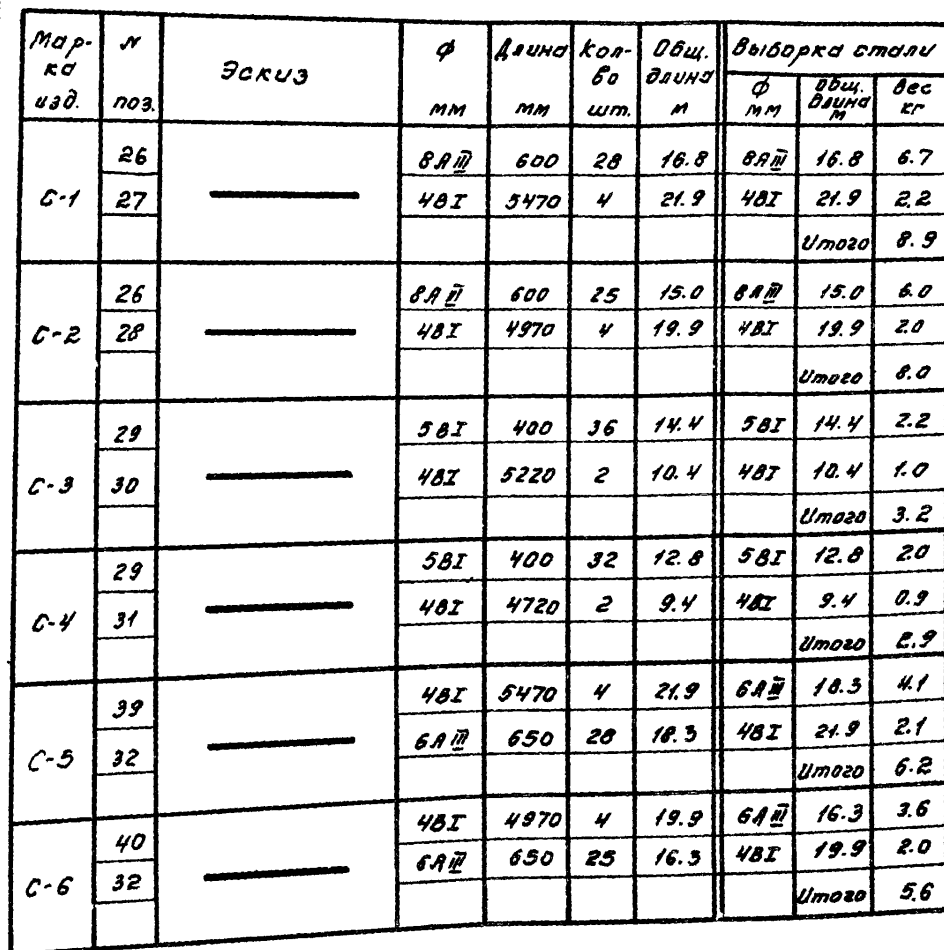 Мар-ка изд. N поз. Эскиз ф мм Длина мм Кол-во шт. Общ. длина м Выборка стали
ф мм Общ. длина м Вес кг
С-1
26 8АIII 600 28 16.8 8АIII 16.8 6.7
27 4ВI 5470 4 21.9 4ВI 21.9 2.2
Итого 8.9
С-2
26 8АII 600 25 15.0 8АIII 15.0 6.0
28 4ВI 4970 4 19.9 4ВI 19.9 2.0
Итого 8.0
С-3
29 5ВI 400 36 14.4 5ВI 14.4 2.2
30 4ВI 5220 2 10.4 4ВI 10.4 1.0
Итого 3.2
С-4
29 5ВI 400 32 12.8 5ВI 12.8 2.0
31 4ВI 4720 2 9.4 4ВI 9.4 0.9
Итого 2.9
С-5
39 4ВI 5470 4 21.9 6АIII 18.3 4.1
32 6АIII 650 28 18.3 4ВI 21.9 2.1
Итого 6.2
С-6
40 4ВI 4970 4 19.9 6АIII 16.3 3.6
32 6АIII 650 25 16.3 4ВI 19.9 2.0
Итого 5.6